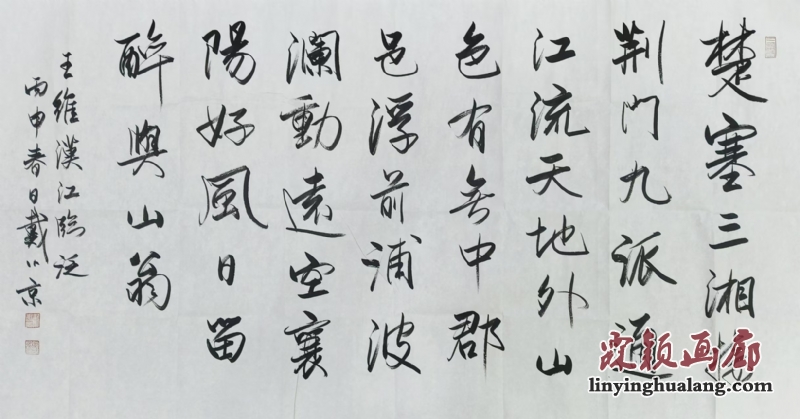 楚塞三湘接
荆门九派通
江流天地外山
色有無中郡
邑浮前浦波
瀾動遠空襄
陽好風日留
醉與山翁
王維漢江臨泛
丙申春日戴小京
霖颖画廊
linyinghualang.com